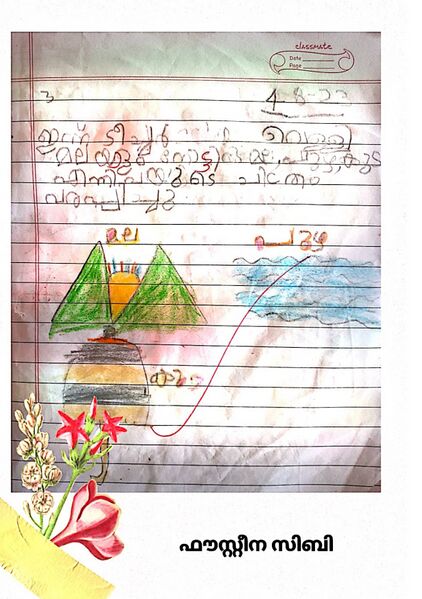 classmate
Date
Page
3
4-8-23
ഇന്ന് ടീച്ചർ വെള്ളി
മലയാളം
എന്നിവയുടെ ചിത്രം
വരപ്പിച്ചു
മല
പുഴ
ഫൗസ്റ്റീന സിബി